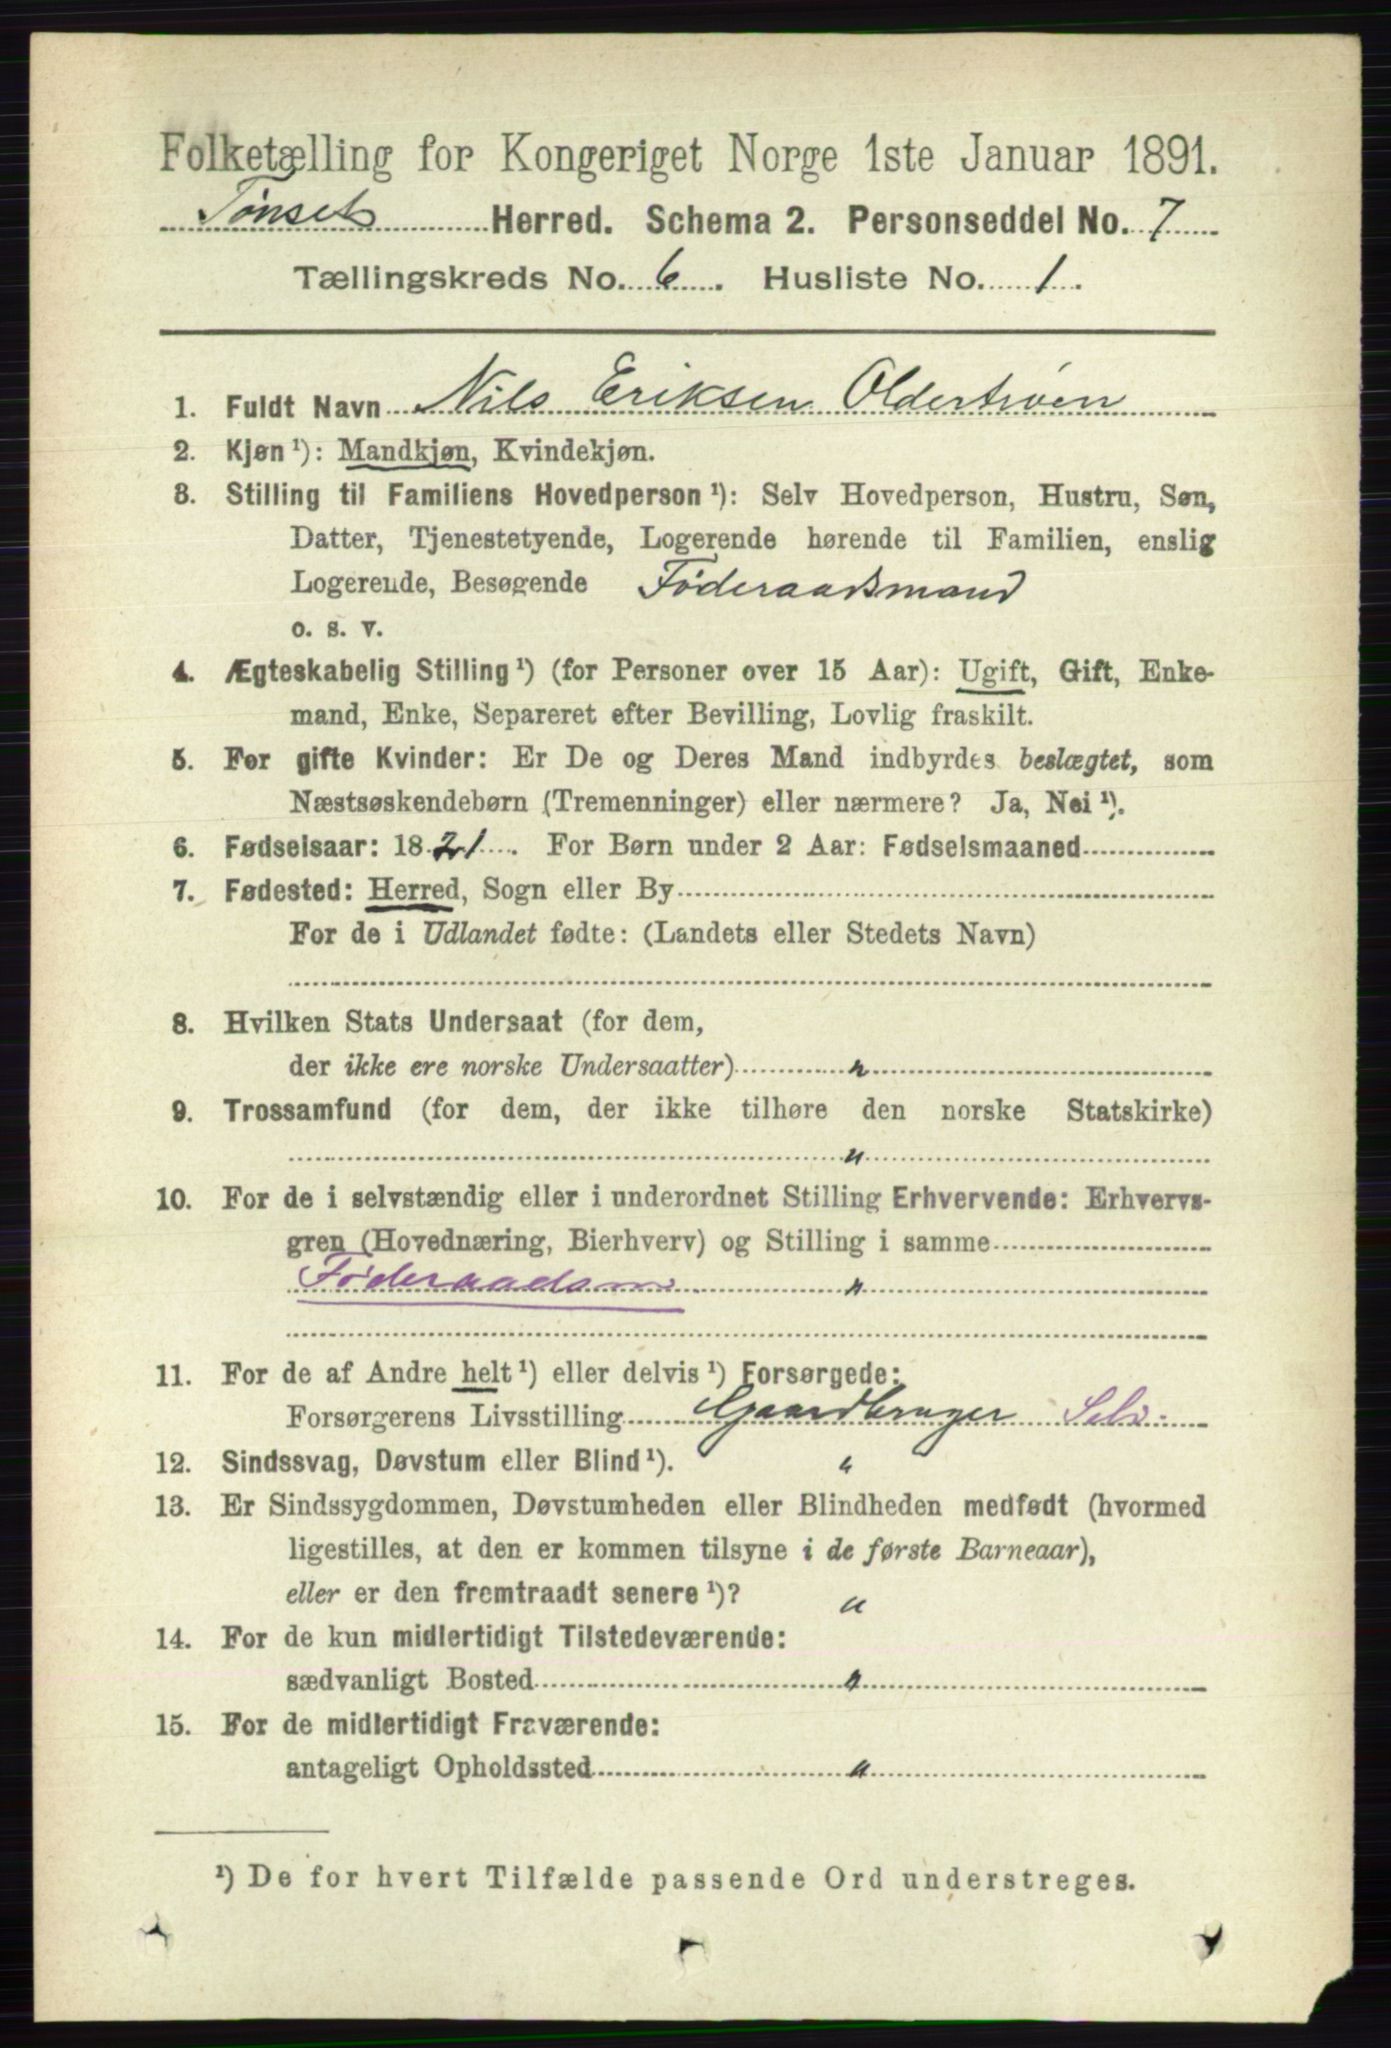 Folketælling for Kongeriget Norge 1ste Januar 1891.
Tønset Herred. Schema 2. Personseddel No. 7
Tællingskreds No. 6. Husliste No. 1.
1. Fuldt Navn Nils Eriksen Oldertrøen
2. Kjøn¹): Mandkjøn, Kvindekjøn.
3. Stilling til Familiens Hovedperson¹): Selv Hovedperson, Hustru, Søn,
Datter, Tjenestetyende, Logerende hørende til Familien, enslig
Logerende, Besøgende Føderaadsmand
o. s. v.
4. Ægteskabelig Stilling¹) (for Personer over 15 Aar): Ugift, Gift, Enke-
mand, Enke, Separeret efter Bevilling, Lovlig fraskilt.
5. For gifte Kvinder: Er De og Deres Mand indbyrdes beslægtet, som
Næstsøskendebørn (Tremenninger) eller nærmere? Ja, Nei¹).
6. Fødselsaar: 1821. For Børn under 2 Aar: Fødselsmaaned
7. Fødested: Herred, Sogn eller By
For de i Udlandet fødte: (Landets eller Stedets Navn)
8. Hvilken Stats Undersaat (for dem,
der ikke ere norske Undersaatter) "
9. Trossamfund (for dem, der ikke tilhøre den norske Statskirke)
"
10. For de i selvstændig eller i underordnet Stilling Erhvervende: Erhvervs-
gren (Hovednæring, Bierhverv) og Stilling i samme
Føderaadsm "
11. For de af Andre helt¹) eller delvis¹) Forsørgede:
Forsørgerens Livsstilling Gaardbruger Selv.
12. Sindssvag, Døvstum eller Blind¹). "
13. Er Sindssygdommen, Døvstumheden eller Blindheden medfødt (hvormed
ligestilles, at den er kommen tilsyne i de første Barneaar),
eller er den fremtraadt senere¹)? "
14. For de kun midlertidigt Tilstedeværende:
sædvanligt Bosted "
15. For de midlertidigt Fraværende:
antageligt Opholdssted "
¹) De for hvert Tilfælde passende Ord understreges.